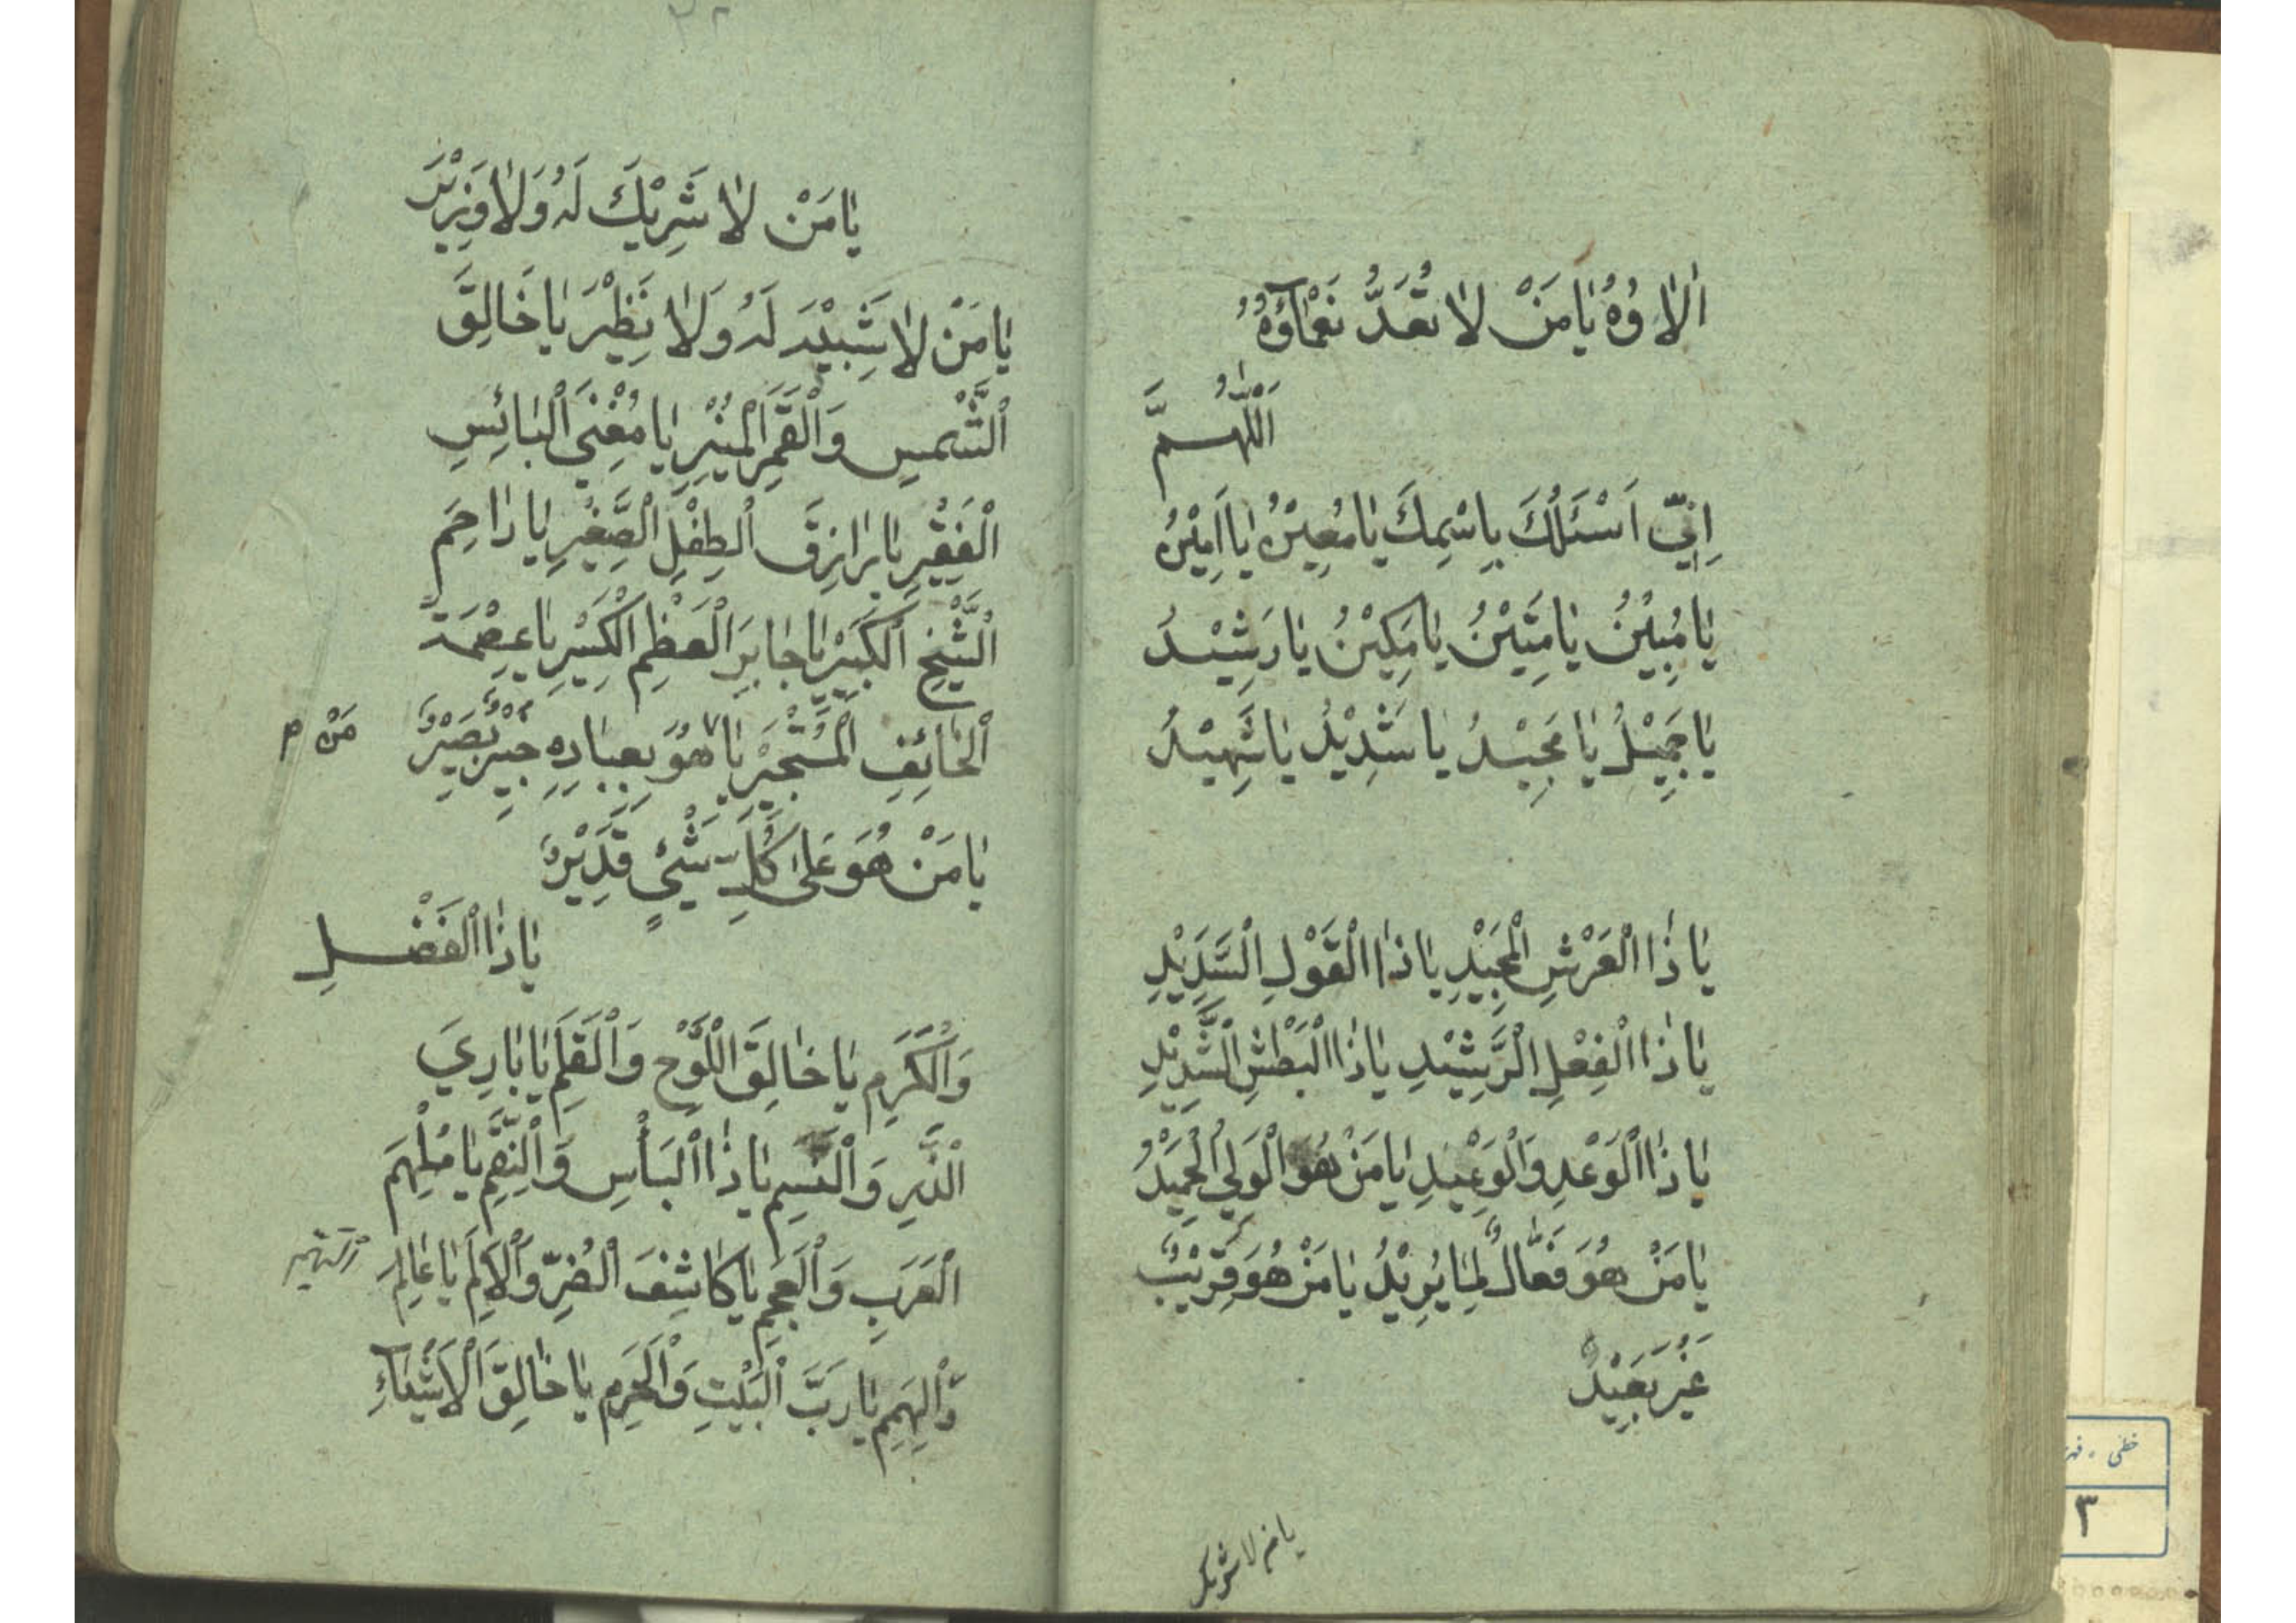 اٰلاٰؤُهُ يٰا مَنْ لاٰ تُعَدُّ نَعْمٰاؤُهُ
اَللّٰهُمَّ
اِنّي اَسْئَلُكَ بِاسْمِكَ يٰا مُعِيْنُ يٰا اَمِيْنُ
يٰا مُبِيْنُ يٰا مَتِيْنُ يٰا مَكِيْنُ يٰا رَشِيْدُ
يٰا حَمِيْدُ يٰا مَجِيْدُ يٰا شَدِيْدُ يٰا شَهِيْدُ
يٰا ذَا الْعَرْشِ الْمَجِيْدِ يٰا ذَا الْقَوْلِ السَّدِيْدِ
يٰا ذَا الْفِعْلِ الرَّشِيْدِ يٰا ذَا الْبَطْشِ الشَّدِيْدِ
يٰا ذَا الْوَعْدِ وَالْوَعِيْدِ يٰا مَنْ هُوَ الْوَلِيُّ الْحَمِيْدُ
يٰا مَنْ هُوَ فَعّٰالٌ لِمٰا يُرِيْدُ يٰا مَنْ هُوَ قَرِيْبٌ
غَيْرُ بَعِيْدٍ
يا من لا شريك
يٰا مَنْ لاٰ شَرِيْكَ لَهُ وَلاٰ وَزِيْرَ
يٰا مَنْ لاٰ شَبِيْهَ لَهُ وَلاٰ نَظِيْرَ يٰا خٰالِقَ
الشَّمْسِ وَالْقَمَرِ الْمُنِيْرِ يٰا مُغْنِيَ الْبٰائِسِ
الْفَقِيْرِ يٰا رٰازِقَ الطِّفْلِ الصَّغِيْرِ يٰا رٰاحِمَ
الشَّيْخِ الْكَبِيْرِ يٰا جٰابِرَ الْعَظْمِ الْكَسِيْرِ يٰا عِصْمَةَ
الْخٰائِفِ الْمُسْتَجِيْرِ يٰا هُوَ بِعِبٰادِهِ خَبِيْرٌ بَصِيْرٌ
مَنْ م
يٰا مَنْ هُوَ عَلىٰ كُلِّ شَيْئٍ قَدِيْرٌ
يٰا ذَا الْفَضْلِ
وَالْكَرَمِ يٰا خٰالِقَ اللَّوْحِ وَالْقَلَمِ يٰا بٰارِيَ
الذَّرِّ وَالْنَسَمِ يٰا ذَا الْبَأْسِ وَالْنِقَمِ يٰا مُلْهِمَ
الْعَرَبِ وَالْعَجَمِ يٰا كٰاشِفَ الْضُرِّ وَالْاَلَمِ يٰا عٰالِمَ
وَالْهِمَمِ يٰا رَبَّ الْبَيْتِ وَالْحَرَمِ يٰا خٰالِقَ الْاَشْيٰاءِ
خطی ، فهر
٣